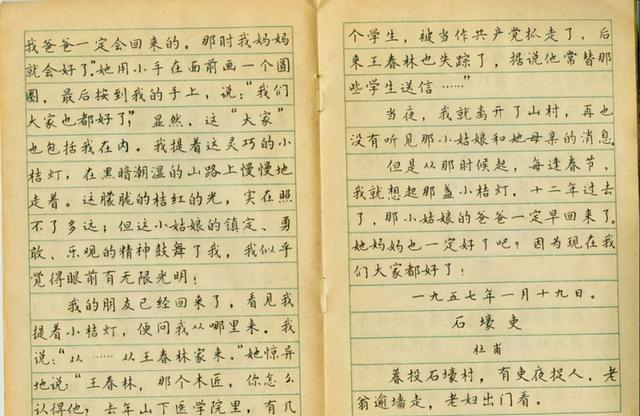 我爸爸一定会回来的。那时我妈妈
就会好了”她用小手在面前画一个圆
圈，最后按到我的手上，说：“我们
大家也都好了”显然，这“大家”
也包括我在内。我提着这灵巧的小
桔灯，在黑暗潮湿的山路上慢慢地
走着。这朦胧的桔红的光，实在照
不了多远；但这小姑娘的镇定、勇
敢、乐观的精神鼓舞了我，我似乎
觉得眼前有无限光明！
我的朋友已经回来了，看见我
提着小桔灯，便问我从哪里来。我
说：“从……从王春林家来。”她惊异
地说：“王春林，那个木匠，你怎么
认得他？去年山下医学院里，有几
个学生，被当作共产党抓走了，后
来王春林也失踪了，据说他常替那
些学生送信……”
当夜，我就离开了山村，再也
没有听见那小姑娘和她母亲的消息
但是从那时候起，每逢春节，
我就想起那盏小桔灯，十二年过去
了，那小姑娘的爸爸一定早回来了。
她妈妈也一定好了吧？因为现在我
们大家都好了！
一九五七年一月十九日。
石壕吏
杜甫
暮投石壕村，有吏夜捉人，老
翁逾墙走，老妇出门看。